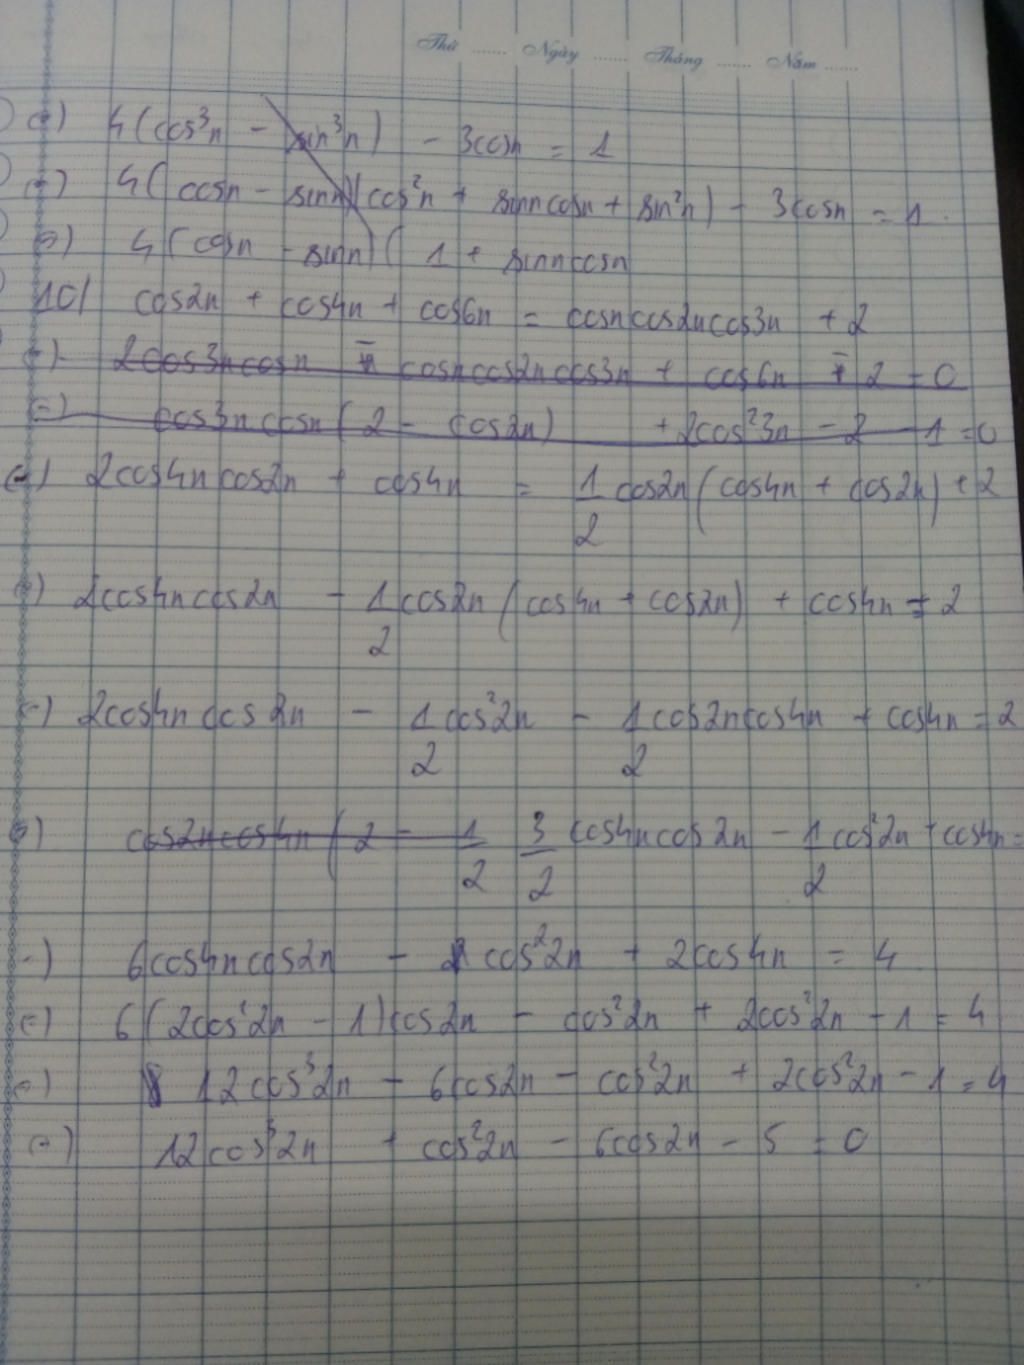 Thứ ...... Ngày ...... Tháng ...... Năm ......
⇔) 4(cos³n - sin³n) - 3cosn = 1
⇔) 4(cosn - sinn)(cos²n + sinncosn + sin²n) - 3cosn = 1
⇔) 4(cosn - sinn)(1 + sinncosn
10/ cos2n + cos4n + cos6n = cosncos2ncos3n + 2
⇔) 2cos3ncosn - cosncos2ncos3n + cos6n - 2 = 0
⇔) cos3ncosn(2 - cos2n) + 2cos²3n - 2 - 1 = 0
⇔) 2cos4ncos2n + cos4n = 1/2 cos2n(cos4n + cos2n) + 2
⇔) 2cos4ncos2n - 1/2 cos2n(cos4n + cos2n) + cos4n = 2
⇔) 2cos4ncos2n - 1/2 cos²2n - 1/2 cos2ncos4n + cos4n = 2
⇔) cos2ncos4n(2 - 1/2 3/2 cos4ncos2n - 1/2 cos²2n + cos4n =
⇔) 6cos4ncos2n - 2 cos²2n + 2cos4n = 4
⇔) 6(2cos²2n - 1)cos2n - cos²2n + 2cos²2n - 1 = 4
⇔) 12cos³2n - 6cos2n - cos²2n + 2cos²2n - 1 = 4
⇔) 12cos³2n + cos²2n - 6cos2n - 5 = 0